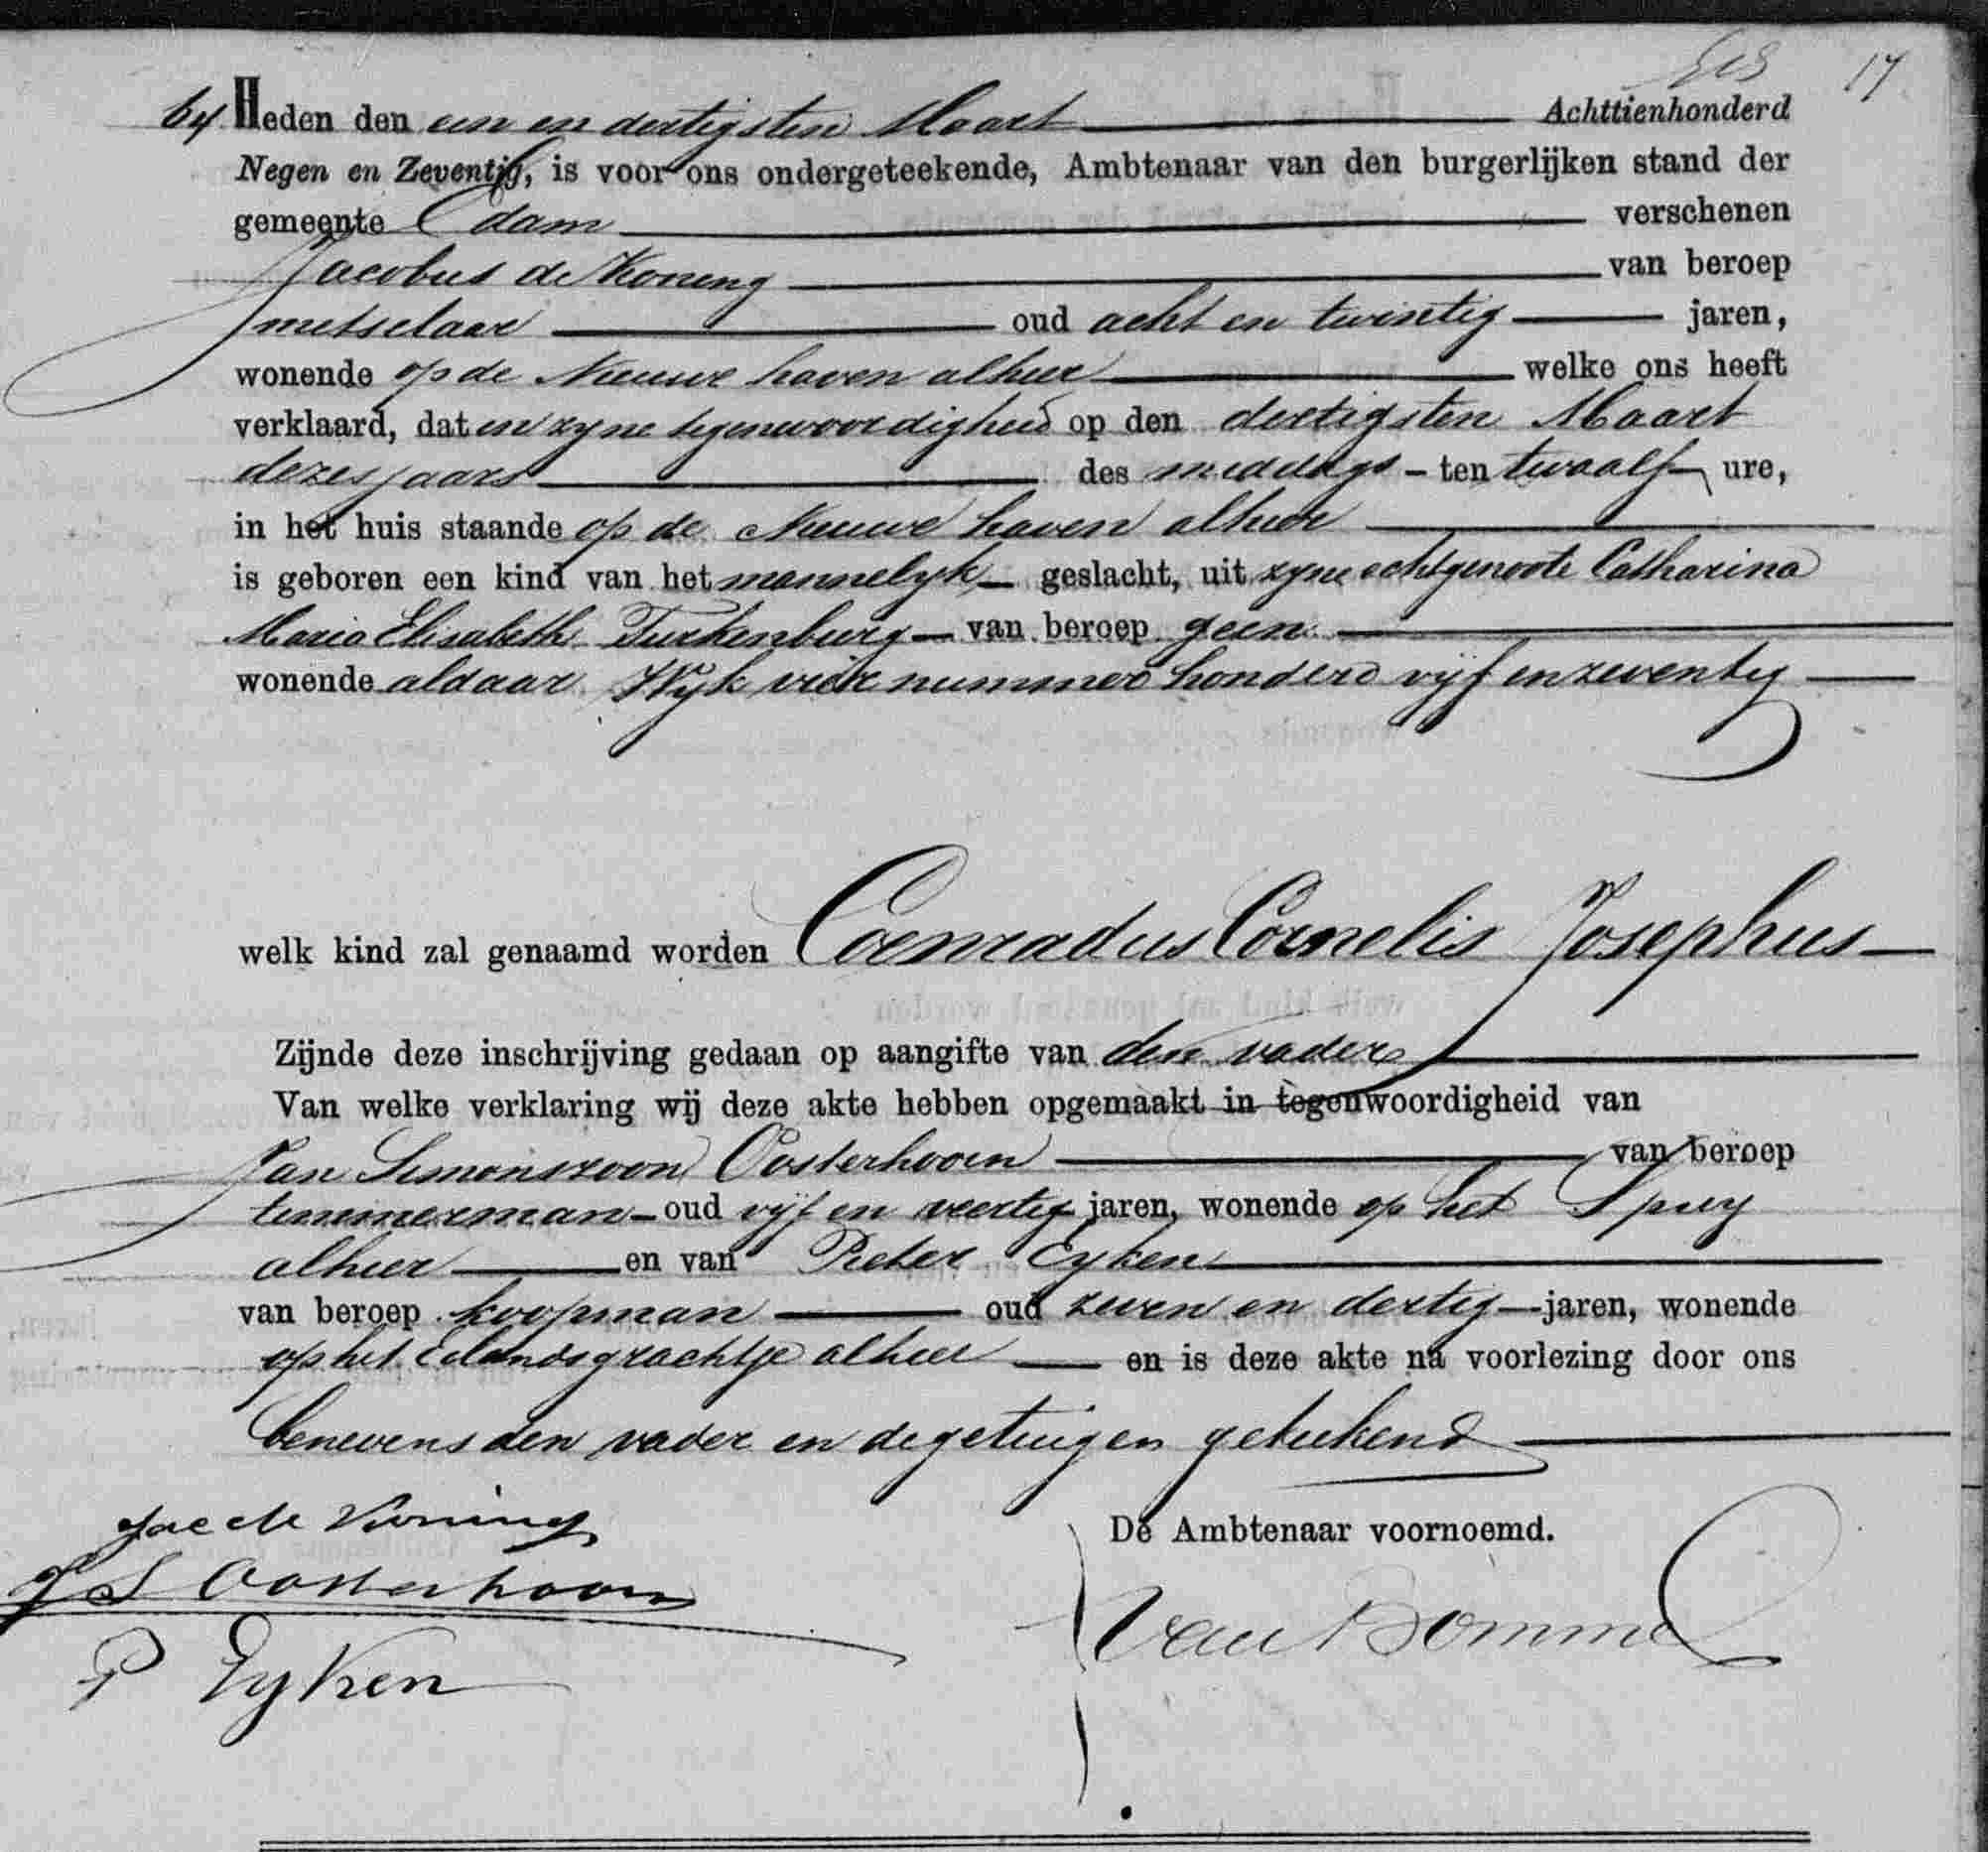 17
64 Heden den een en dertigsten Maart Achttienhonderd
Negen en Zeventig, is voor ons ondergeteekende, Ambtenaar van den burgerlijken stand der
gemeente Edam verschenen
Jacobus de Koning van beroep
metselaar oud acht en twintig jaren,
wonende op de Nieuwe haven alhier welke ons heeft
verklaard, dat in zyne tegenwoordigheid op den dertigsten Maart
dezes jaars des middags ten twaalf ure,
in het huis staande op de Nieuwe haven alhier
is geboren een kind van het mannelyk geslacht, uit zyne echtgenoote Catharina
Maria Elisabeth Turkenburg van beroep geen
wonende aldaar Wyk vier nummer honderd vyf en zeventig
welk kind zal genaamd worden Coenradus Cornelis Josephus
Zijnde deze inschrijving gedaan op aangifte van den vader
Van welke verklaring wij deze akte hebben opgemaakt in tegenwoordigheid van
Jan Simonszoon Oosterhoorn van beroep
timmerman oud vyf en veertig jaren, wonende op het Spuy
alhier en van Pieter Eyken
van beroep koopman oud zeven en dertig jaren, wonende
op het Eilandsgrachtje alhier en is deze akte na voorlezing door ons
benevens den vader en de getuigen geteekend
Jac de Koning
De Ambtenaar voornoemd.
J S Oosterhoorn
Van Bommel
P Eyken